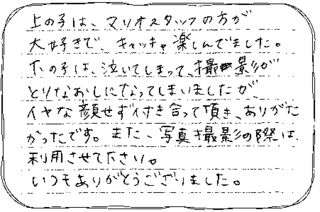 上の子は、マリオスタッフの方が
大好きで、キャッキャ楽しんでました。
下の子は、泣いてしまって、撮影が
とりなおしになってしまいましたが
イヤな顔せず付き合って頂き、ありがた
かったです。また、写真撮影の際は、
利用させて下さい。
いつもありがとうございました。